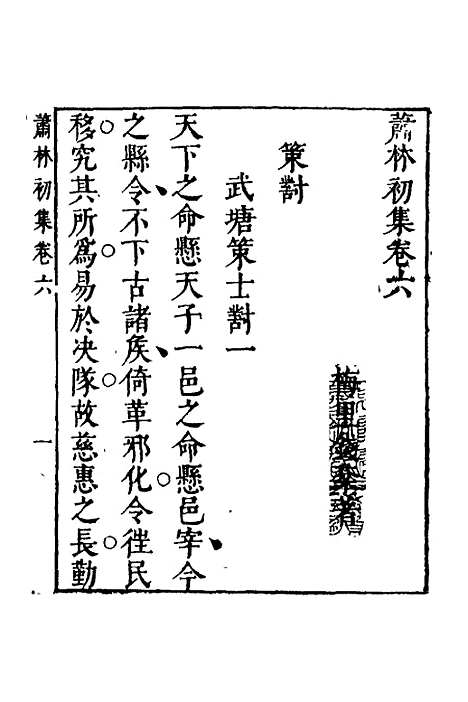 蕭林初集卷六
梅里錢棻著
策對
武塘策士對一
天下之命懸天子一邑之命懸邑宰今
之縣令不下古諸矦倚革邪化令徃民
移究其所爲易於决隊故慈惠之長勤
蕭林初集卷六 一